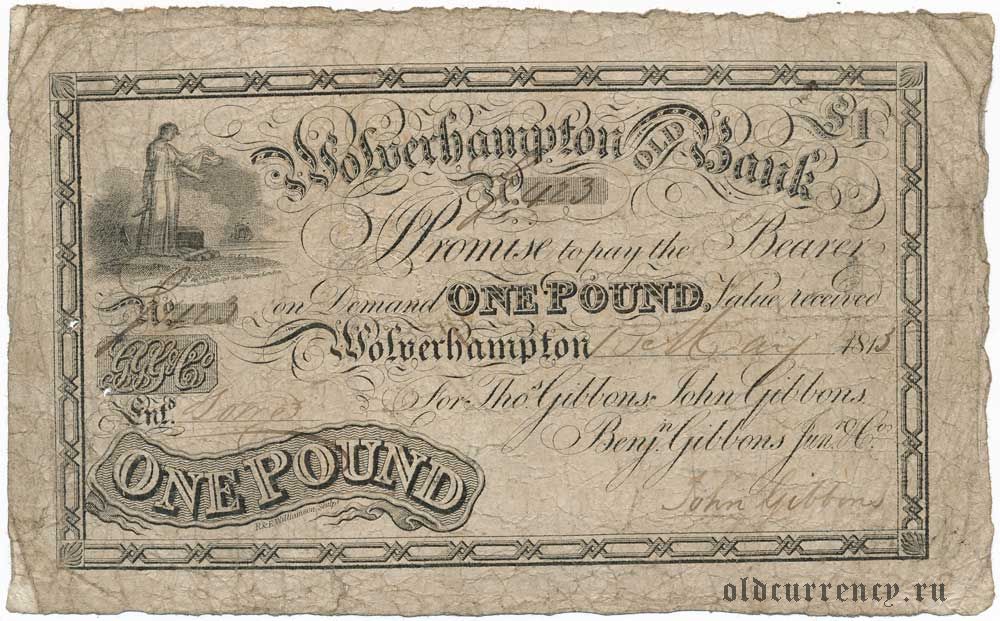 Wolverhampton OLD Bank £1
No. 423
I Promise to pay the Bearer
on Demand ONE POUND, Value received
No. 423
Wolverhampton 1 May 1815
GGG&Co
Entd.
For Thos. Gibbons, John Gibbons,
Benjn. Gibbons Junr. & Co.
John Gibbons
ONE POUND
R&E. Williamson, Sculpt.
oldcurrency.ru